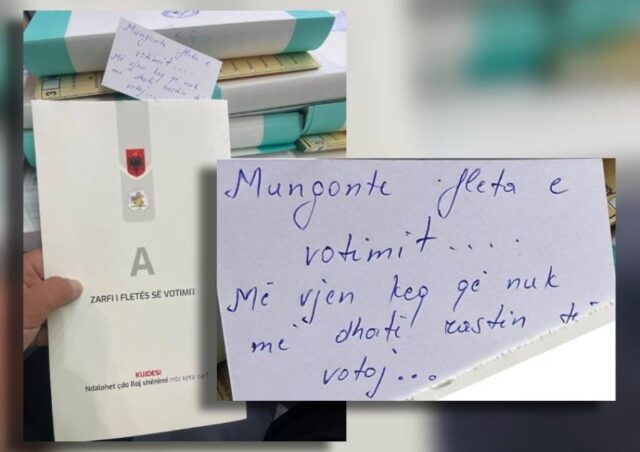 Mungonte fleta e
votimit....
Më vjen keq që nuk
më dhatë rastin të
votoj...
A
ZARFI I FLETËS SË VOTIMIT
KUJDES!
Ndalohet çdo lloj shënimi mbi këtë zarf
Mungonte fleta e
votimit....
Më vjen keq që nuk
më dhatë rastin të
votoj...